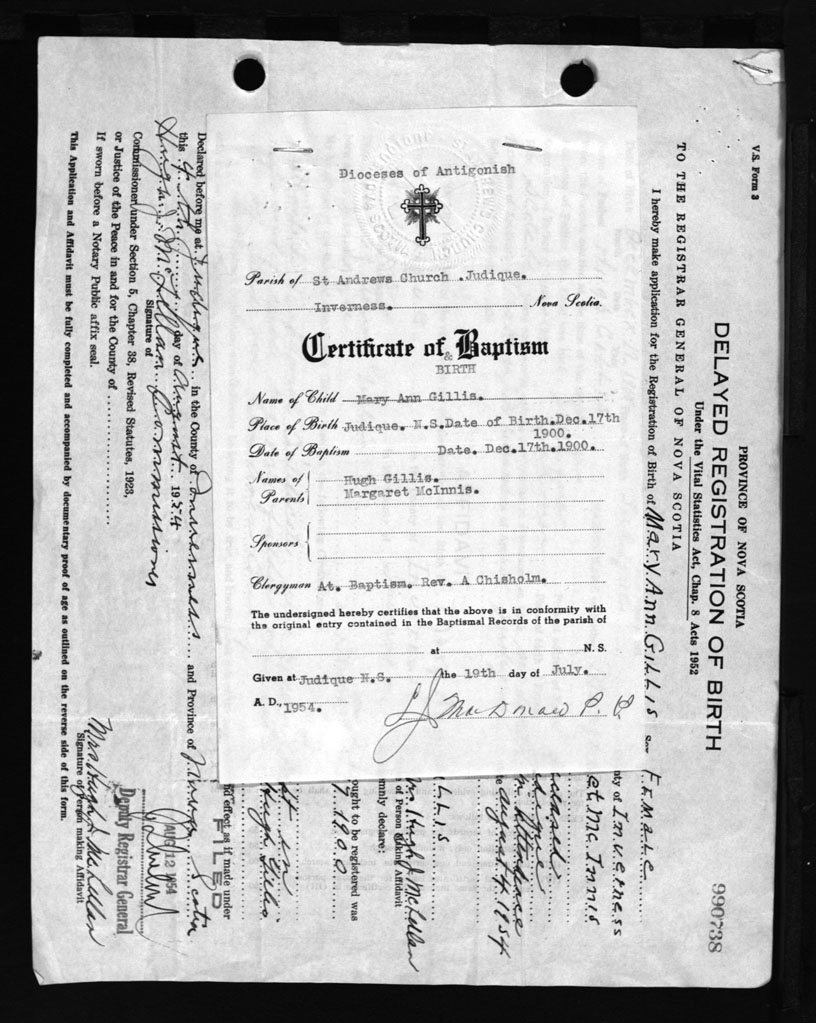 Dioceses of Antigonish
Parish of St Andrews Church .Judique.
Inverness. Nova Scotia.
Certificate of & Baptism
BIRTH
Name of Child Mary Ann Gillis.
Place of Birth Judique. N.S. Date of Birth. Dec. 17th
1900.
Date of Baptism Date. Dec. 17th. 1900.
Names of Parents Hugh Gillis.
Margaret McInnis.
Sponsors
Clergyman At. Baptism. Rev. A Chisholm.
The undersigned hereby certifies that the above is in conformity with
the original entry contained in the Baptismal Records of the parish of
at N. S.
Given at Judique N.S. the 19th day of July.
A. D., 1954.
MacDonald P. P.
V.S. Form 3
PROVINCE OF NOVA SCOTIA
DELAYED REGISTRATION OF BIRTH
Under the Vital Statistics Act, Chap. 8 Acts 1952
990738
TO THE REGISTRAR GENERAL OF NOVA SCOTIA
I hereby make application for the Registration of Birth of Mary Ann Gillis Sex Female
nty of Inverness
et Mc Innis
eceased
dique
Attendance
e August 4 1954
llis
Mrs Hugh J McLellan
of Person Making Affidavit
mnly declare:
ought to be registered was
7 1900
at in
Hugh Gillis
d effect as if made under
FILED
Declared before me at Judique in the County of Inverness and Province of Nova Scotia
this 4th day of August 1954
Hugh J. McLellan Commissioner
Signature of
Commissioner under Section 5, Chapter 38, Revised Statutes, 1923,
or Justice of the Peace in and for the County of
If sworn before a Notary Public affix seal.
AUG 12 1954
Deputy Registrar General
Mrs Hugh J McLellan
Signature of Person making Affidavit
This Application and Affidavit must be fully completed and accompanied by documentary proof of age as outlined on the reverse side of this form.